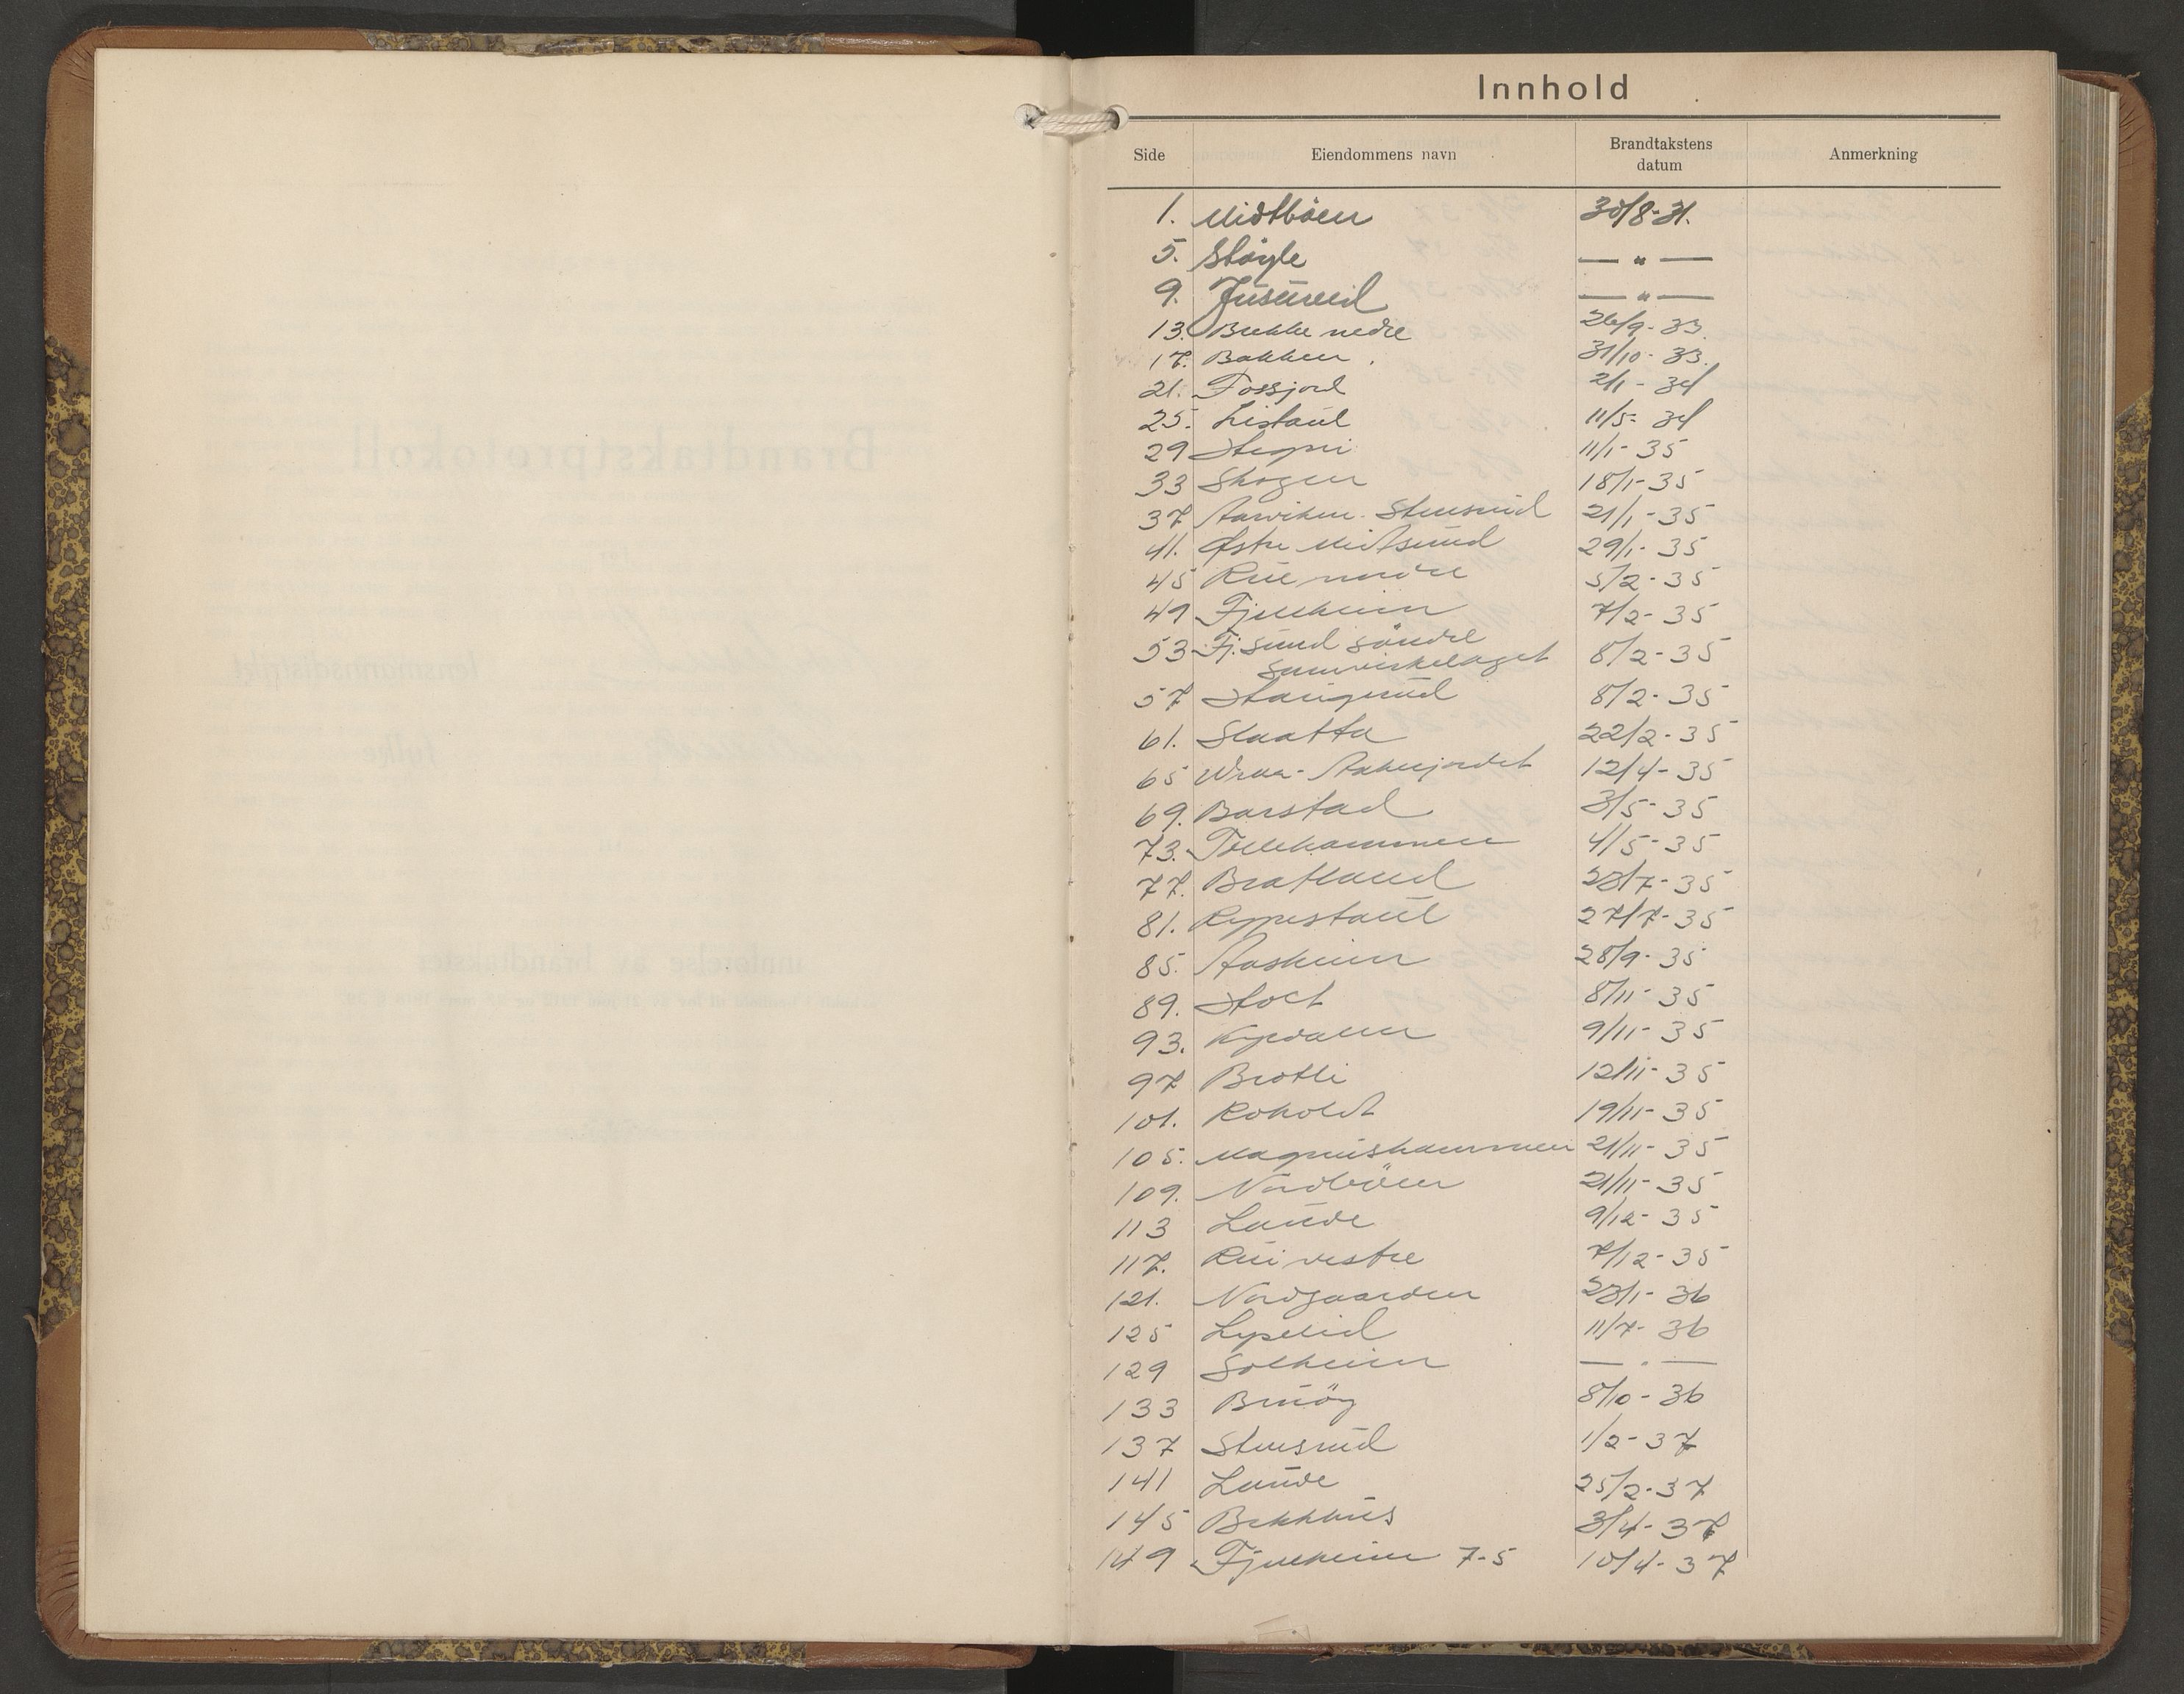 Innhold
Side Eiendommens navn Brandtakstens datum Anmerkning
1. Midtböen 30/8-31.
5. Stöyle — " —
9. Jusureid — " —
13. Bekke nedre 26/9-33.
17. Bakken. 31/10-33.
21. Fossjord 2/1-34
25. Listaul 11/5-34
29 Stegni 11/1-35
33 Skogen 18/1-35
37 Aarviken. Stensrud 21/1-35
41. Østre Midtsund 29/1-35
45 Rue nordre 5/2-35
49 Fjellheim 7/2-35
53 Fj. sund söndre 8/2-35
Samvirkelaget
57 Haugerud 8/2-35
61. Slaatta 22/2-35
65 Wraa-Aakerjordet 12/4-35
69. Barstad 3/5-35
73. Tollehammeren 4/5-35
77. Bratland 23/7-35
81. Rypestaul 27/7-35
85. Aasheim 28/9-35
89. Holt 8/11-35
93. Kyrdalen 9/11-35
97 Brotli 12/11-35
101. Roholdt 19/11-35
105. Magnushammeren 21/11-35
109. Nordböen 21/11-35
113 Lunde 9/12-35
117. Rui vestre 7/12-35
121. Nordgaarden 23/1-36
125 Lyslid 11/7-36
129 Solheim — " —
133 Bruöy 8/10-36
137 Stensrud 1/2-37
141 Lunde 25/2-37
145 Bekkhus 3/4-37
149 Fjellheim 7-5 10/4-37